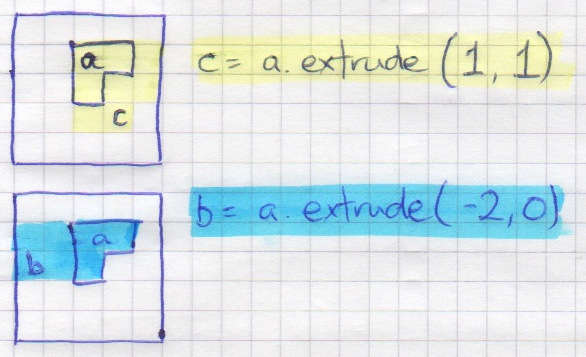 a
c
c = a.extrude (1, 1)
a
b
b = a.extrude(-2,0)